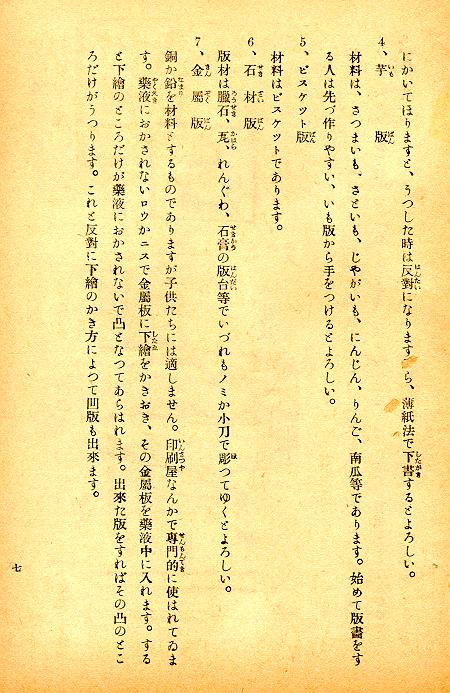 にかいてほりますと、うつした時は反對になりますら、薄紙法で下書するとよろしい。
4、芋版
材料は、さつまいも、さといも、じやがいも、にんじん、りんご、南瓜等であります。始めて版畫をす
る人は先づ作りやすい、いも版から手をつけるとよろしい。
5、ビスケツト版
材料はビスケツトであります。
6、石材版
版材は臘石、瓦、れんぐわ、石膏の版台等でいづれもノミか小刀で彫つてゆくとよろしい。
7、金屬版
銅か鉛を材料とするものでありますが子供たちには適しません。印刷屋なんかで專門的に使はれてゐま
す。藥液におかされないロウかニスで金屬板に下繪をかきおき、その金屬板を藥液中に入れます。する
と下繪のところだけが藥液におかされないで凸となつてあらはれます。出來た版をすればその凸のとこ
ろだけがうつります。これと反對に下繪のかき方によつて凹版も出來ます。
七